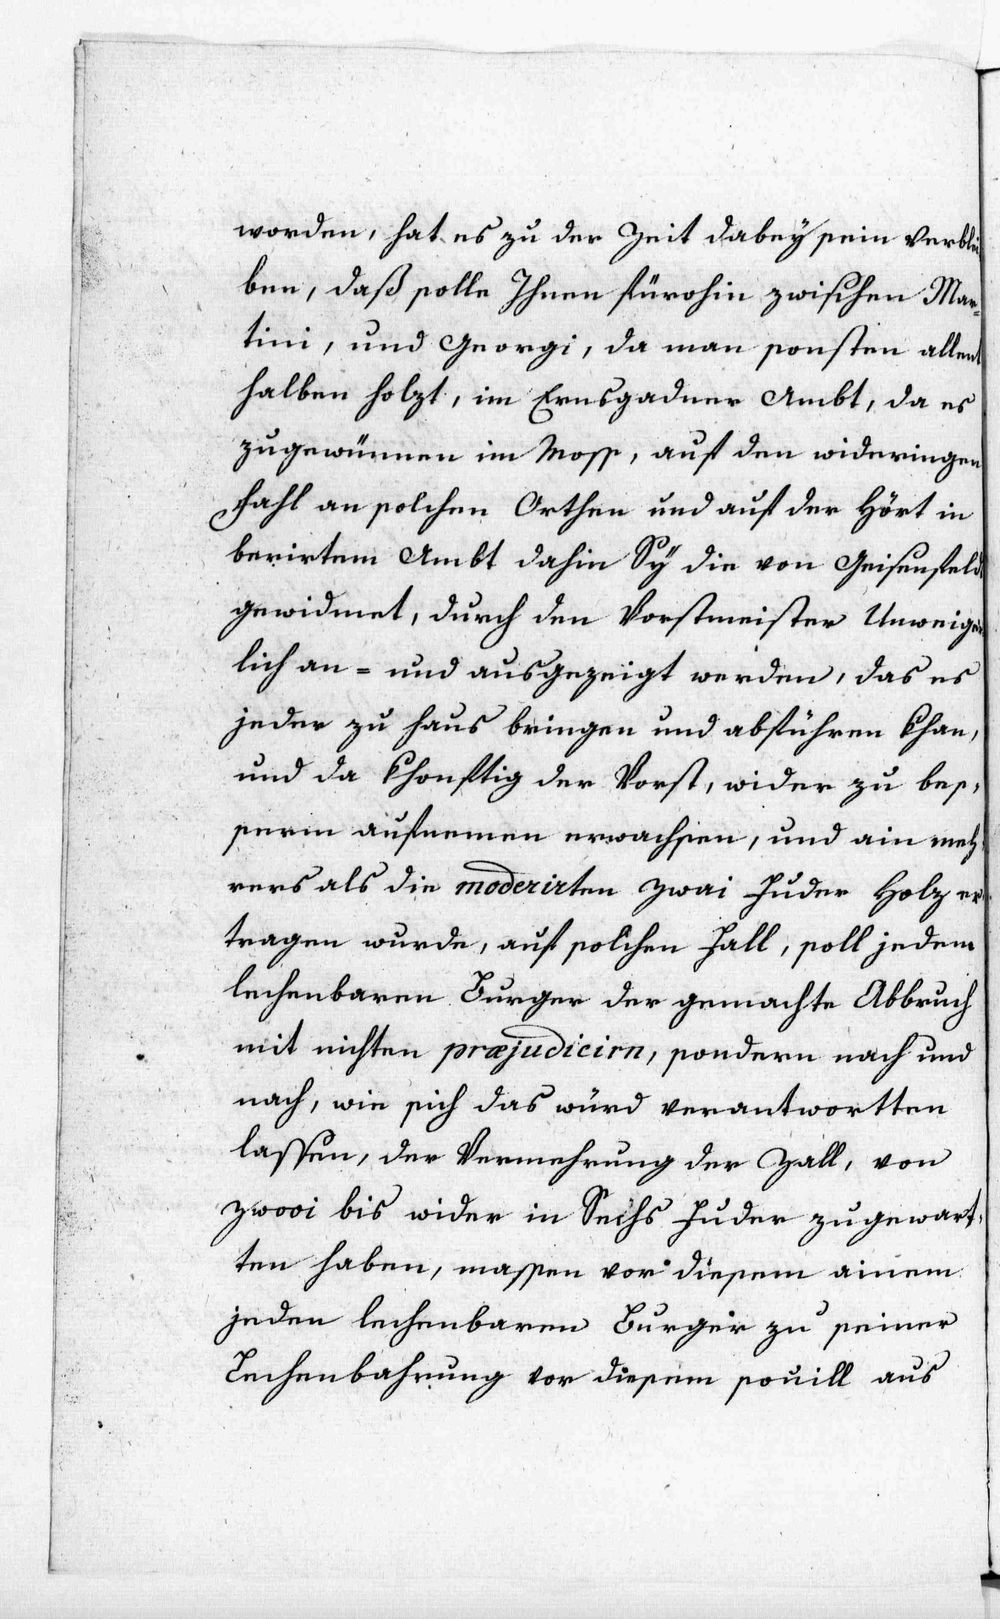 worden, hat es zu der Zeit dabeÿ sein verblei
ben, daß solle Ihnen fürohin zwischen Mar=
tini, und Georgi, da man sonsten allent
halben holzt, im Ernsgadner Ambt, da es
zugewünnen im Moss, auf den wideringen
fahl an solchen Orthen und auf der Hört in
berirtem Ambt dahin Sÿ die von Geisenfeld
gewidmet, durch den Vorstmeister Unweiger
lich an= und ausgezeigt werden, das es
jeder zu haus bringen und abführen khan,
und da khonftig der Vorst, wider zu bes=
serm aufnemen erwachsen, und ain meh=
rers als die moderirten zwai Fuder Holz er
tragen wurde, auf solchen Fall, soll jedem
lechenbaren Burger der gemachte Abbruch
mit nichten præjudicirn, sondern nach und
nach, wie sich das würd verantwortten
lassen, der Vermehrung der Zall, von
zwooi bis wider in Sechs Fuder zugewart=
ten haben, massen vor diesem ainem
jeden lechenbaren Burger zu seiner
Lechenbahrung vor diesem souill aus